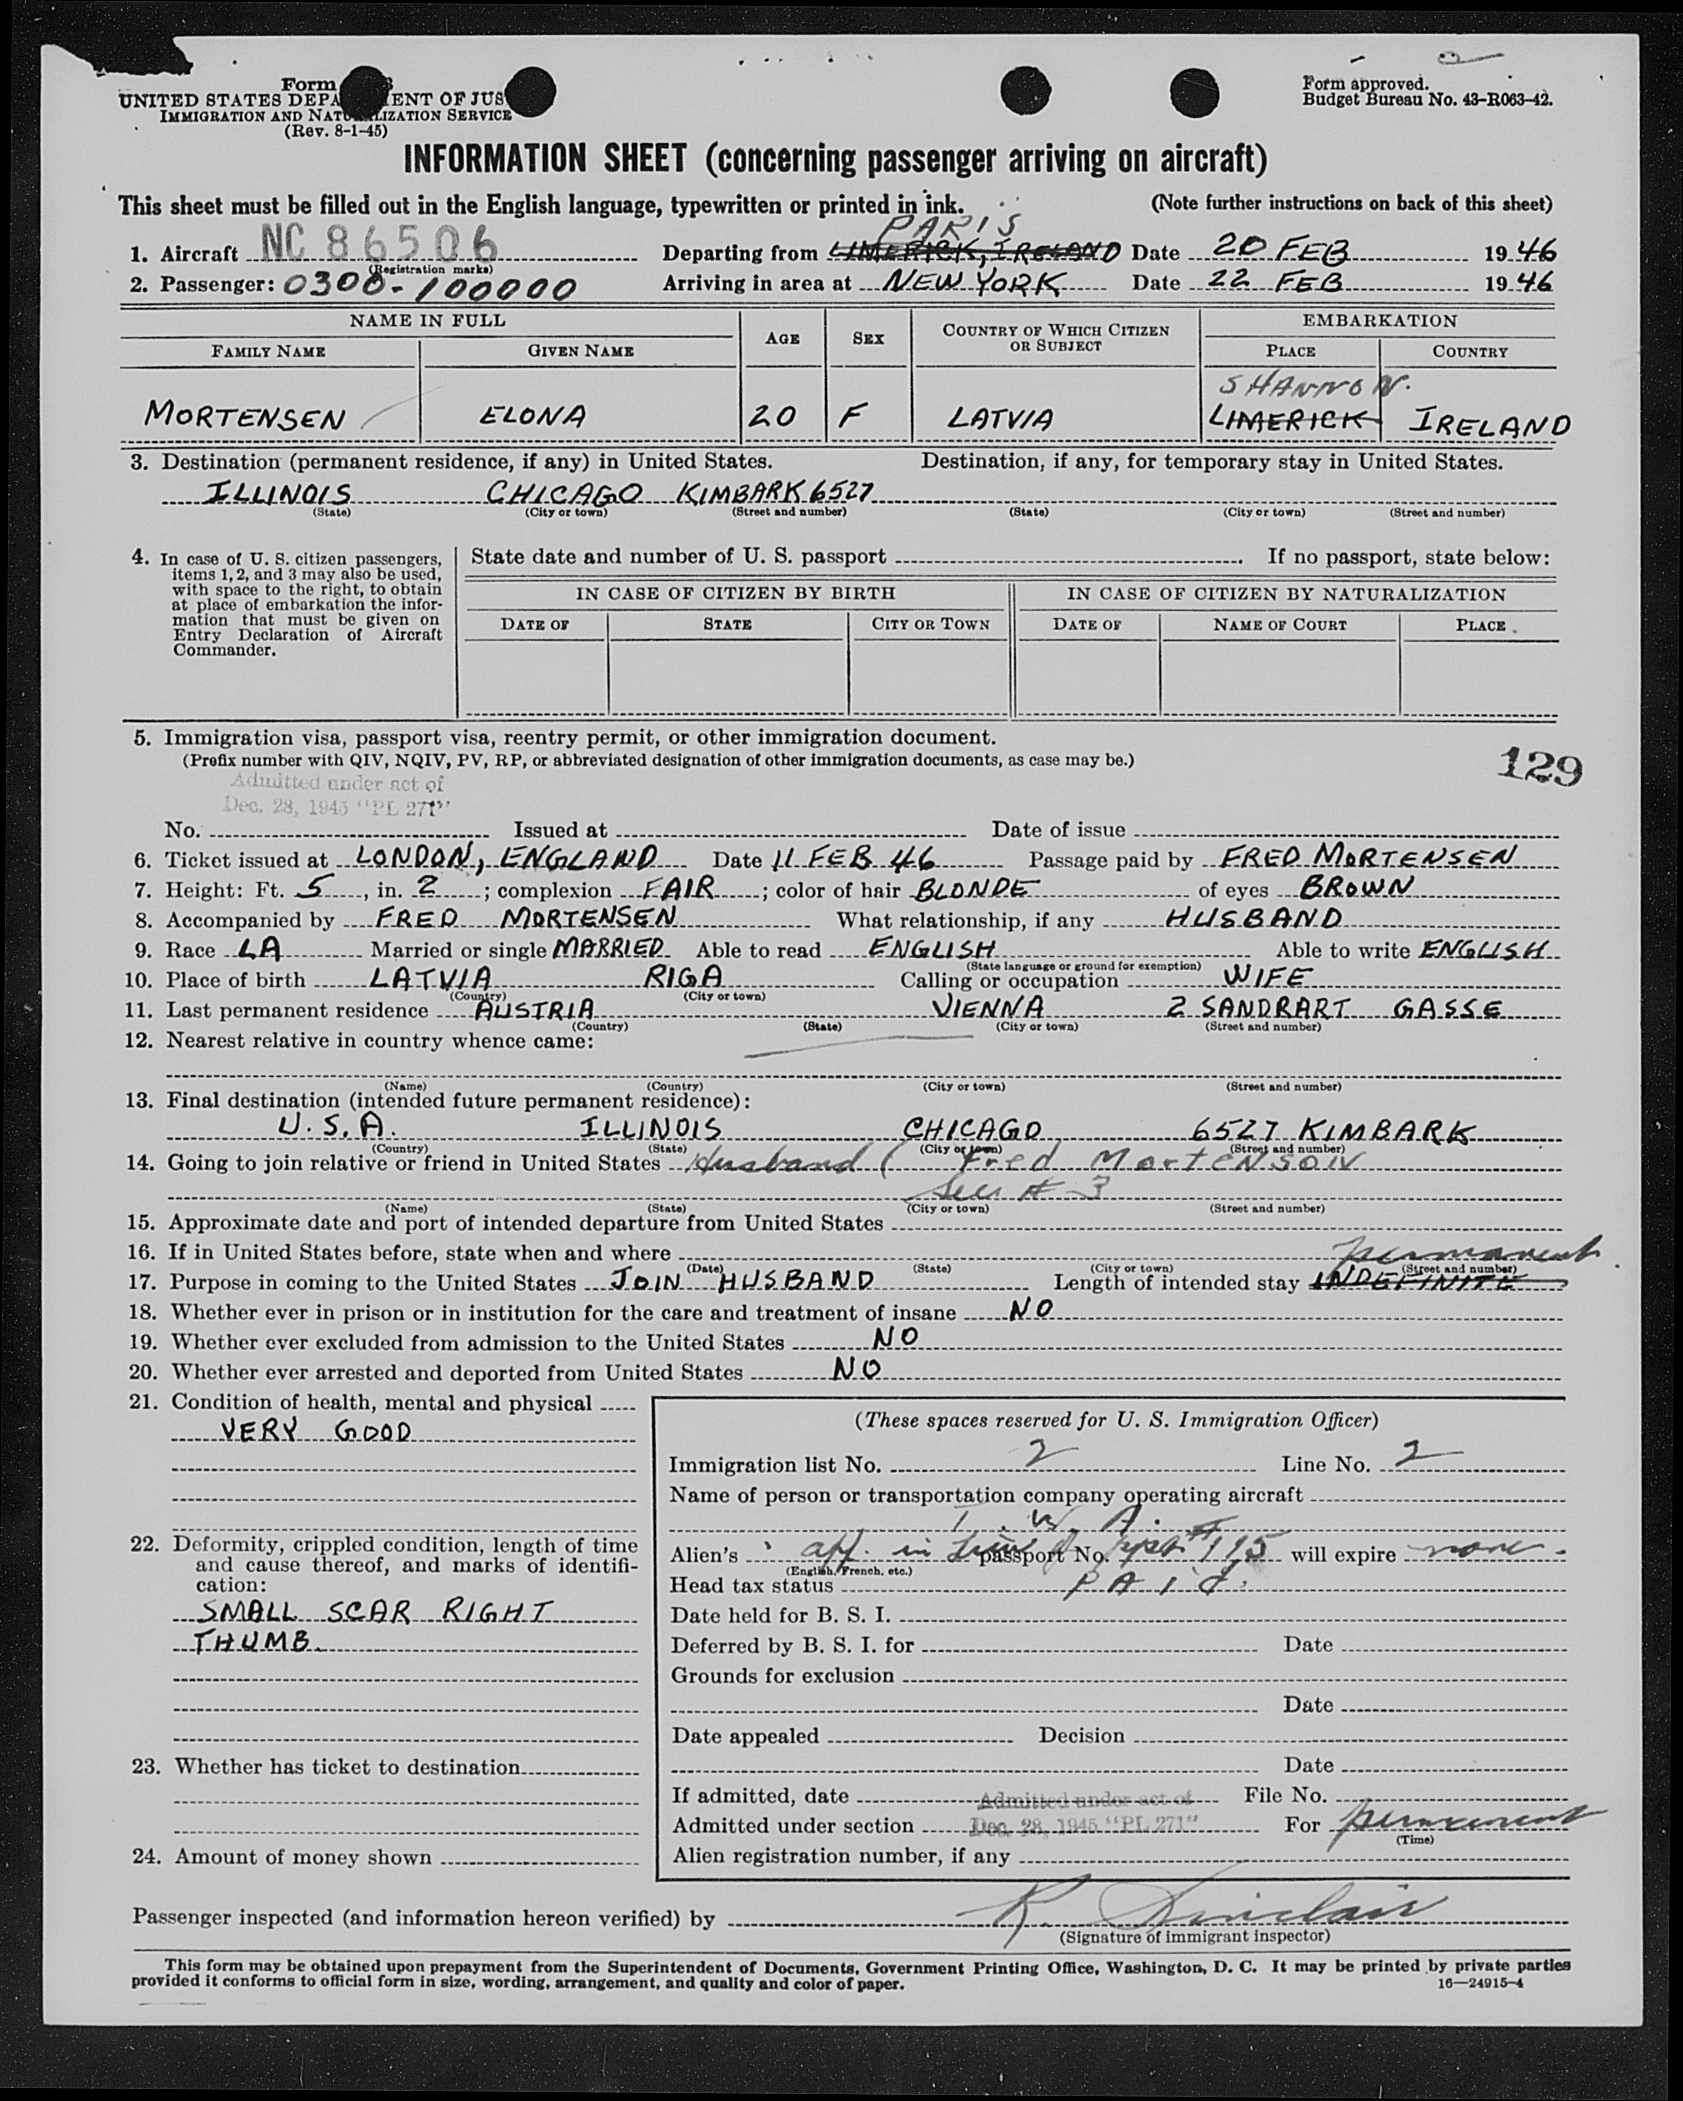 Form
UNITED STATES DEPARTMENT OF JUSTICE
IMMIGRATION AND NATURALIZATION SERVICE
(Rev. 8-1-45)
Form approved.
Budget Bureau No. 43-R063-42.
INFORMATION SHEET (concerning passenger arriving on aircraft)
This sheet must be filled out in the English language, typewritten or printed in ink. (Note further instructions on back of this sheet)
PARIS
1. Aircraft NC 86506 Departing from LIMERICK, IRELAND Date 20 FEB 1946
(Registration marks)
2. Passenger: 0300-100000 Arriving in area at NEW YORK Date 22 FEB 1946
NAME IN FULL AGE SEX COUNTRY OF WHICH CITIZEN OR SUBJECT EMBARKATION
FAMILY NAME GIVEN NAME PLACE COUNTRY
SHANNON.
MORTENSEN ELONA 20 F LATVIA LIMERICK IRELAND
3. Destination (permanent residence, if any) in United States. Destination, if any, for temporary stay in United States.
ILLINOIS CHICAGO KIMBARK 6527
(State) (City or town) (Street and number) (State) (City or town) (Street and number)
4. In case of U. S. citizen passengers,
items 1, 2, and 3 may also be used,
with space to the right, to obtain
at place of embarkation the infor-
mation that must be given on
Entry Declaration of Aircraft
Commander.
State date and number of U. S. passport . If no passport, state below:
IN CASE OF CITIZEN BY BIRTH IN CASE OF CITIZEN BY NATURALIZATION
DATE OF STATE CITY OR TOWN DATE OF NAME OF COURT PLACE
5. Immigration visa, passport visa, reentry permit, or other immigration document.
(Prefix number with QIV, NQIV, PV, RP, or abbreviated designation of other immigration documents, as case may be.)
129
Admitted under act of
Dec. 28, 1945 "PL 271"
No. Issued at Date of issue
6. Ticket issued at LONDON, ENGLAND Date 11 FEB 46 Passage paid by FRED MORTENSEN
7. Height: Ft. 5, in. 2; complexion FAIR; color of hair BLONDE of eyes BROWN
8. Accompanied by FRED MORTENSEN What relationship, if any HUSBAND
9. Race LA Married or single MARRIED Able to read ENGLISH Able to write ENGLISH
(State language or ground for exemption)
10. Place of birth LATVIA RIGA Calling or occupation WIFE
(Country) (City or town)
11. Last permanent residence AUSTRIA VIENNA 2 SANDRART GASSE
(Country) (State) (City or town) (Street and number)
12. Nearest relative in country whence came:
(Name) (Country) (City or town) (Street and number)
13. Final destination (intended future permanent residence):
U.S.A. ILLINOIS CHICAGO 6527 KIMBARK
(Country) (State) (City or town) (Street and number)
14. Going to join relative or friend in United States Husband ( Fred Mortenson
See # 3
(Name) (State) (City or town) (Street and number)
15. Approximate date and port of intended departure from United States
16. If in United States before, state when and where
(Date) (State) (City or town) (Street and number)
permanent
17. Purpose in coming to the United States JOIN HUSBAND Length of intended stay INDEFINITE
18. Whether ever in prison or in institution for the care and treatment of insane NO
19. Whether ever excluded from admission to the United States NO
20. Whether ever arrested and deported from United States NO
21. Condition of health, mental and physical
VERY GOOD
22. Deformity, crippled condition, length of time
and cause thereof, and marks of identifi-
cation:
SMALL SCAR RIGHT
THUMB.
23. Whether has ticket to destination
24. Amount of money shown
(These spaces reserved for U. S. Immigration Officer)
Immigration list No. 2 Line No. 2
Name of person or transportation company operating aircraft
T. W. A.
Alien's aff. in lieu of passport No. 115 will expire none.
(English, French, etc.)
Head tax status PAID.
Date held for B. S. I.
Deferred by B. S. I. for Date
Grounds for exclusion
Date
Date appealed Decision
Date
If admitted, date Admitted under act of File No.
Admitted under section Dec. 28, 1945 "PL 271" For permanent
(Time)
Alien registration number, if any
Passenger inspected (and information hereon verified) by R. Sinclair
(Signature of immigrant inspector)
This form may be obtained upon prepayment from the Superintendent of Documents, Government Printing Office, Washington, D. C. It may be printed by private parties
provided it conforms to official form in size, wording, arrangement, and quality and color of paper. 16—24915-4